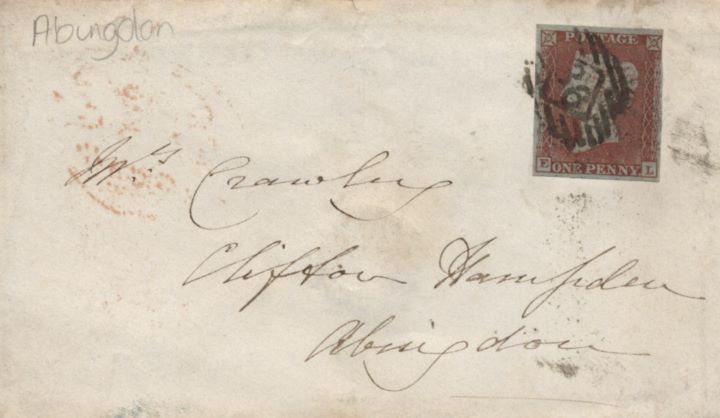 Abingdon
POSTAGE
E ONE PENNY L
Mrs Crawley
Clifton Hampden
Abingdon